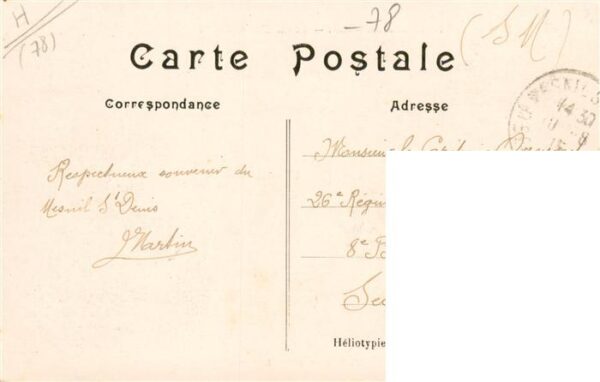 H
(78)
-78
(SM)
Carte Postale
Correspondance
Adresse
LE MESNIL S
14 30
Respectueux souvenir du
Mesnil St Denis
J Martin
Monsieur le
26e Régi
8e
Se
Héliotypie